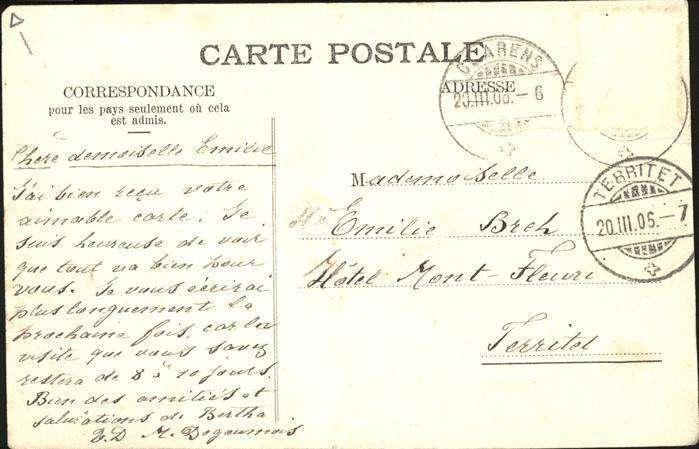 CARTE POSTALE
CLARENS
20.III.06.—6
CORRESPONDANCE
pour les pays seulement où cela
est admis.
ADRESSE
Chère demoiselle Emilie
J'ai bien reçu votre
aimable carte. Je
suis heureuse de voir
que tout va bien pour
vous. Je vous écrirai
plus longuement la
prochaine fois, car la
visite que vous savez
restera de 8 à 10 jours.
Bien des amitiés et
salutations de Bertha
M. Degoumois
Mademoiselle
Emilie Breh
Hôtel Mont-Fleuri
Territet
TERRITET
20.III.06.—7